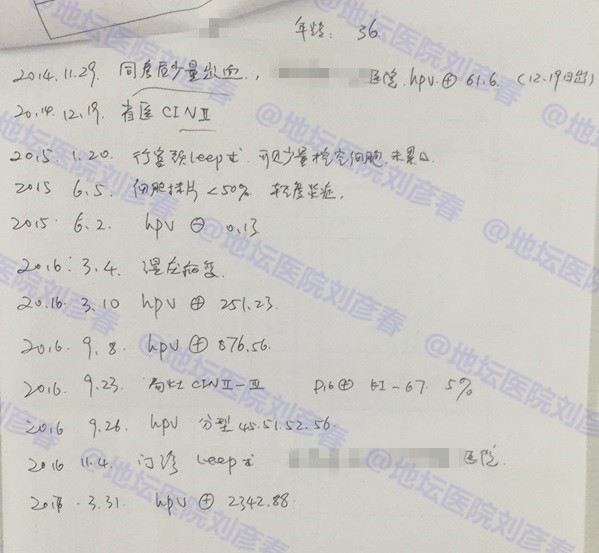 年龄: 36.
2014.11.29. 同房后少量出血, 医院 hpv ⊕ 61.6. (12.19日出)
2014.12.19. 省医 CIN II
2015. 1.20. 行宫颈leep术. 可见少量挖空细胞 未累及.
2015 6.5. 细胞抹片 <50% 轻度炎症.
2015. 6.2. hpv ⊖ 0.13
2016. 3.4. 湿疣病变.
2016. 3.10 hpv ⊕ 251.23.
2016. 9.8. hpv ⊕ 876.56.
2016. 9.23. 局灶CINII-III P16⊕ KI-67. 5%
2016 9.26. hpv 分型 45.51.52.56
2016 11.4. 门诊 Leep术 医院.
3.31. hpv ⊕ 2342.88.
@地坛医院刘彦春